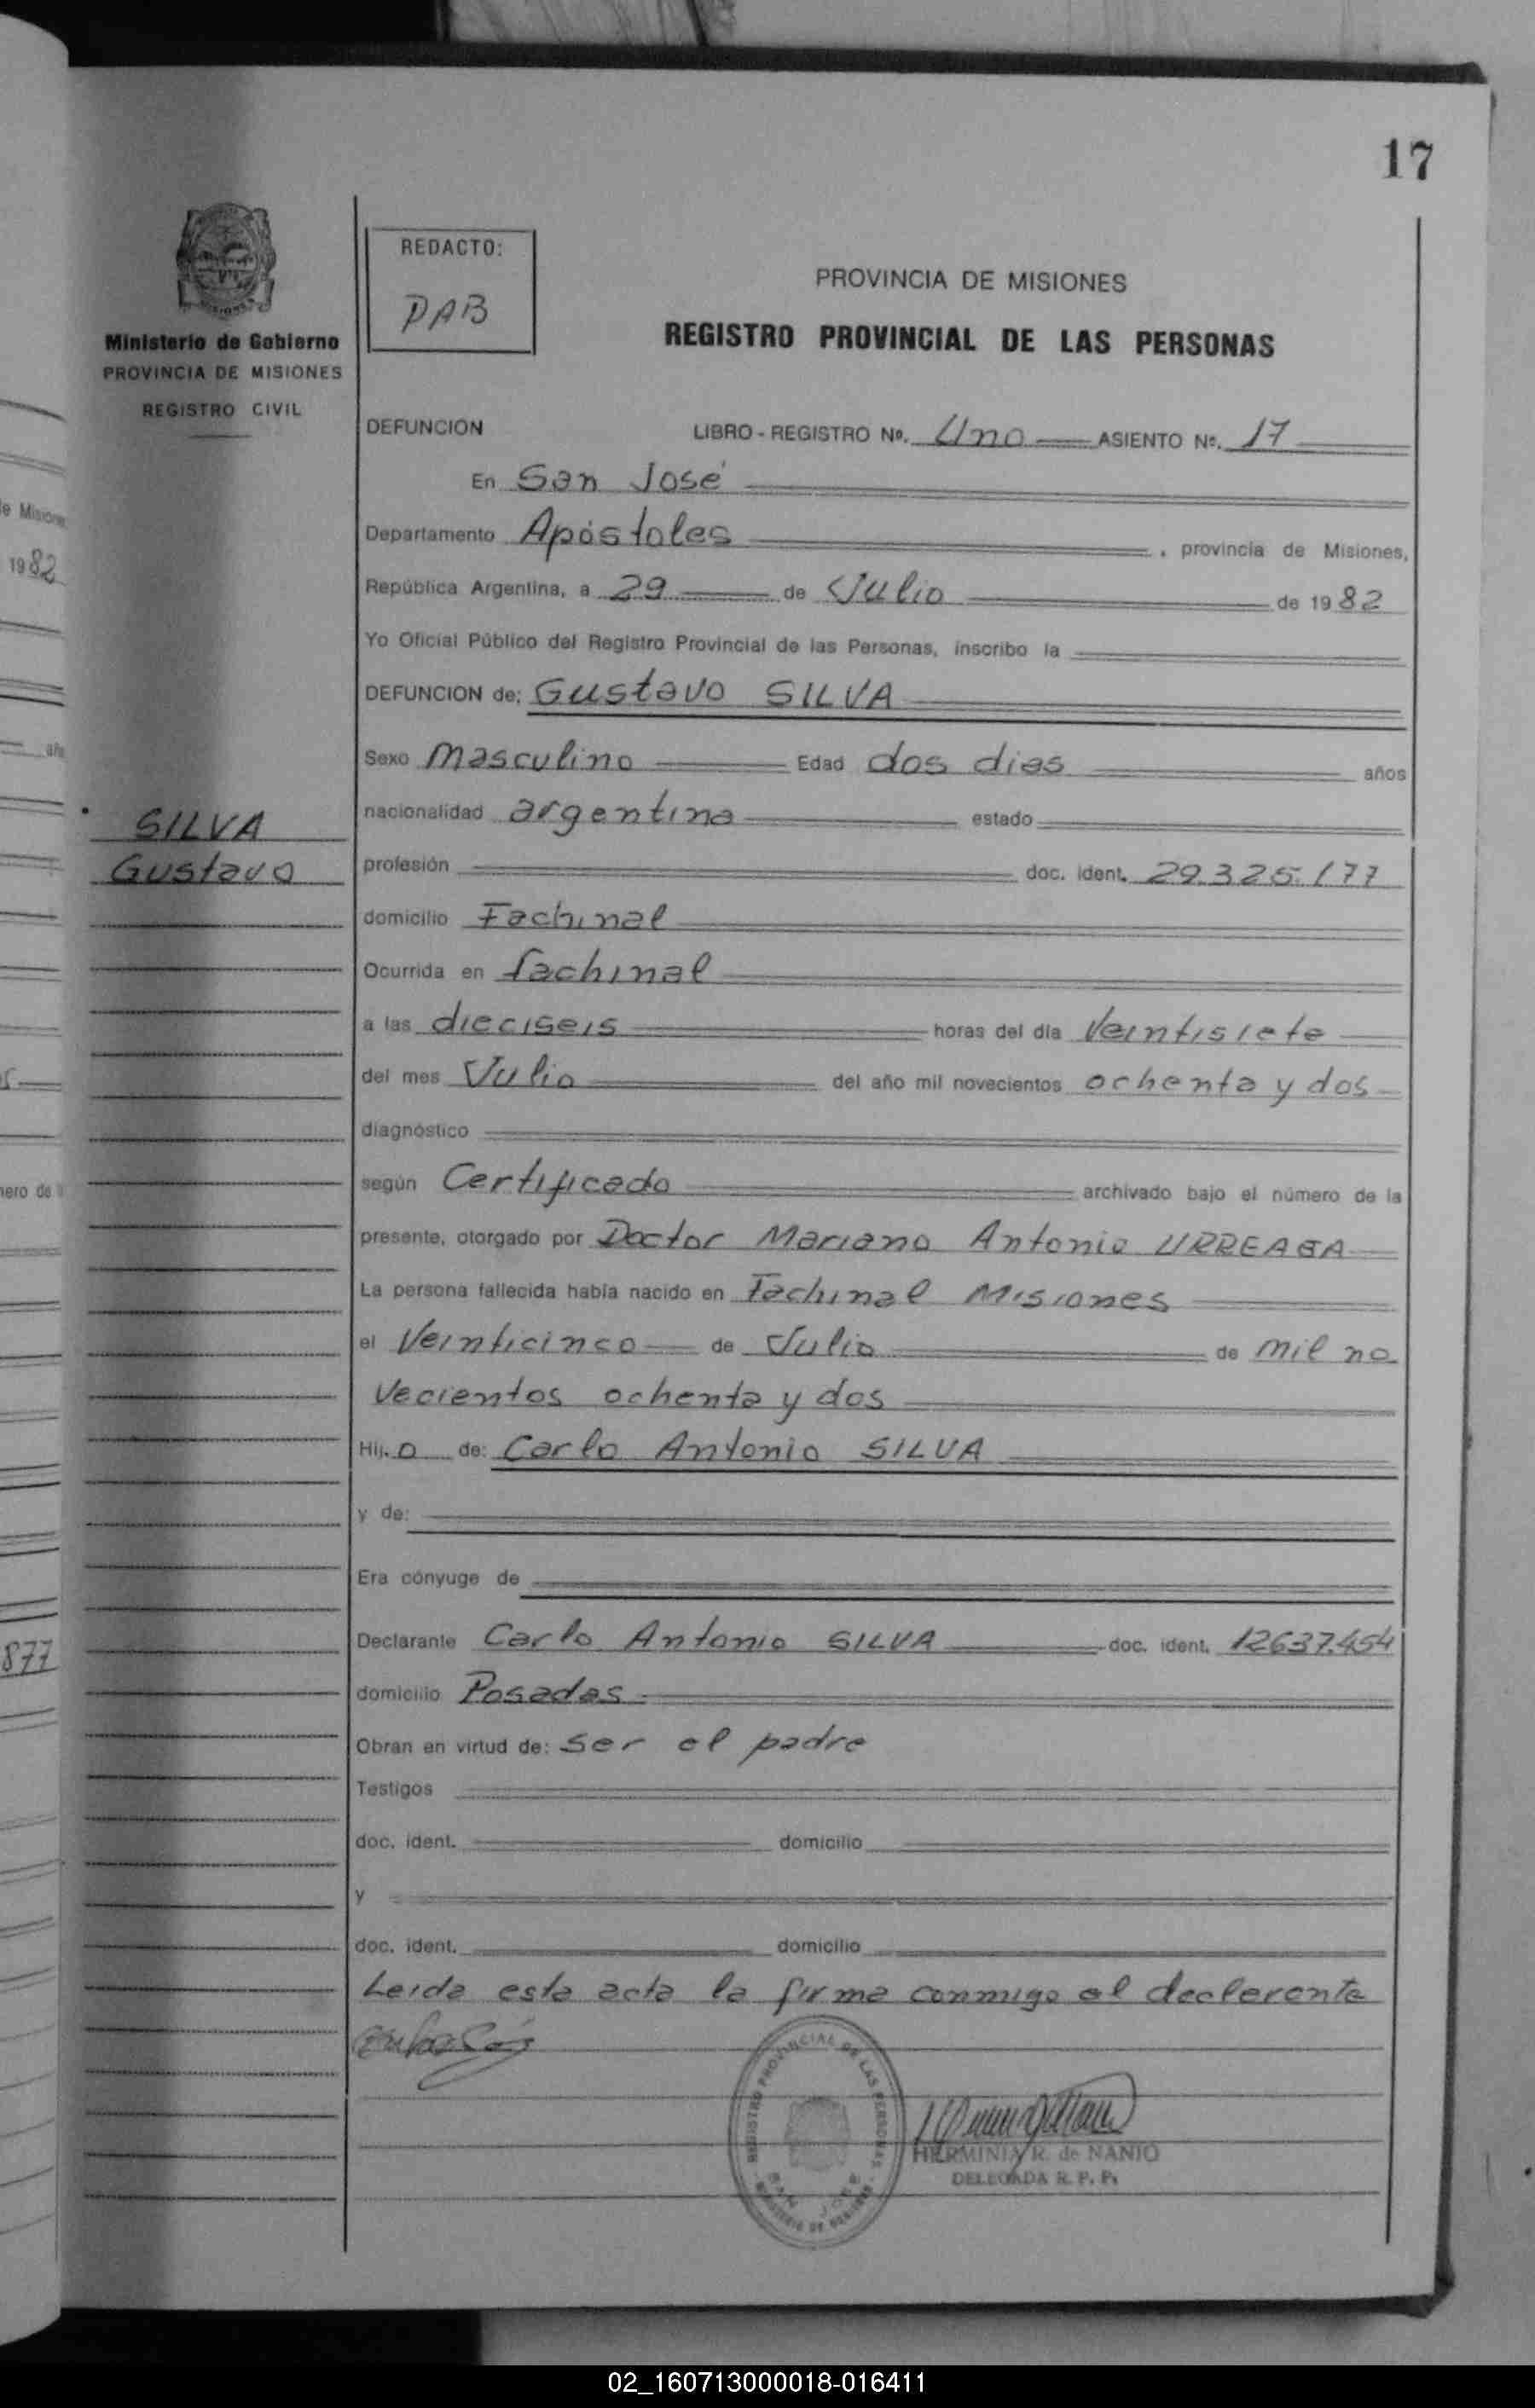 17
REDACTO:
PAB
Ministerio de Gobierno
PROVINCIA DE MISIONES
REGISTRO CIVIL
PROVINCIA DE MISIONES
REGISTRO PROVINCIAL DE LAS PERSONAS
DEFUNCION LIBRO - REGISTRO Nº. Uno ASIENTO Nº. 17
En San José
Departamento Apóstoles , provincia de Misiones,
República Argentina, a 29 de Julio de 1982
Yo Oficial Público del Registro Provincial de las Personas, inscribo la
DEFUNCION de: Gustavo SILVA
Sexo Masculino Edad dos dias años
nacionalidad argentina estado
SILVA
Gustavo
profesión doc. ident. 29.325.177
domicilio Fachinal
Ocurrida en fachinal
a las dieciseis horas del día Veintisiete
del mes Julio del año mil novecientos ochenta y dos
diagnóstico
según Certificado archivado bajo el número de la
presente, otorgado por Doctor Mariano Antonio
La persona fallecida había nacido en Fachinal Misiones
el Veinticinco de Julio de mil no
vecientos ochenta y dos
Hij.o de: Carlo Antonio SILVA
y de:
Era cónyuge de
Declarante Carlo Antonio SILVA doc. ident. 12637.454
domicilio Posadas
Obran en virtud de: Ser el padre
Testigos
doc. ident. domicilio
y
doc. ident. domicilio
Leida esta acta la firma conmigo el declarente
REGISTRO PROVINCIAL DE LAS PERSONAS
SAN JOSE
HERMINIA R. de NANIO
DELEGADA R. P. P.
de Misiones
1982
año
número de l
877
02_160713000018-016411